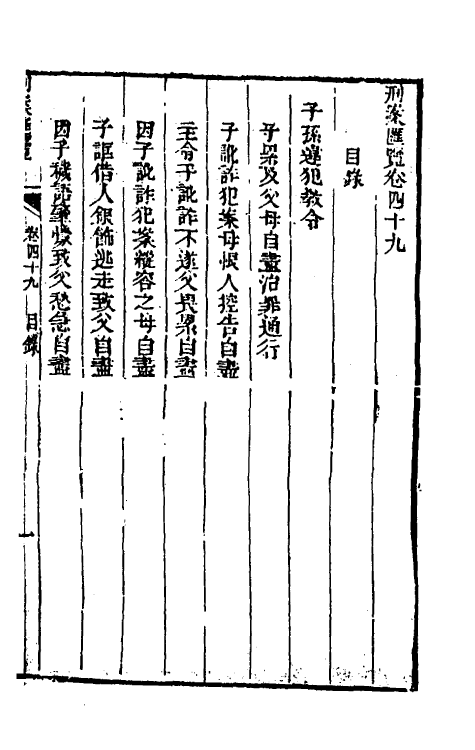 刑案匯覽卷四十九
目錄
子孫違犯教令
子累及父母自盡治罪通行
子訛詐犯案母恨人控告自盡
主令子訛詐不遂父畏累自盡
因子訛詐犯案縱容之母自盡
子誆借人銀飾逃走致父自盡
因子穢語誣衊致父愁急自盡
卷四十九 目錄
一